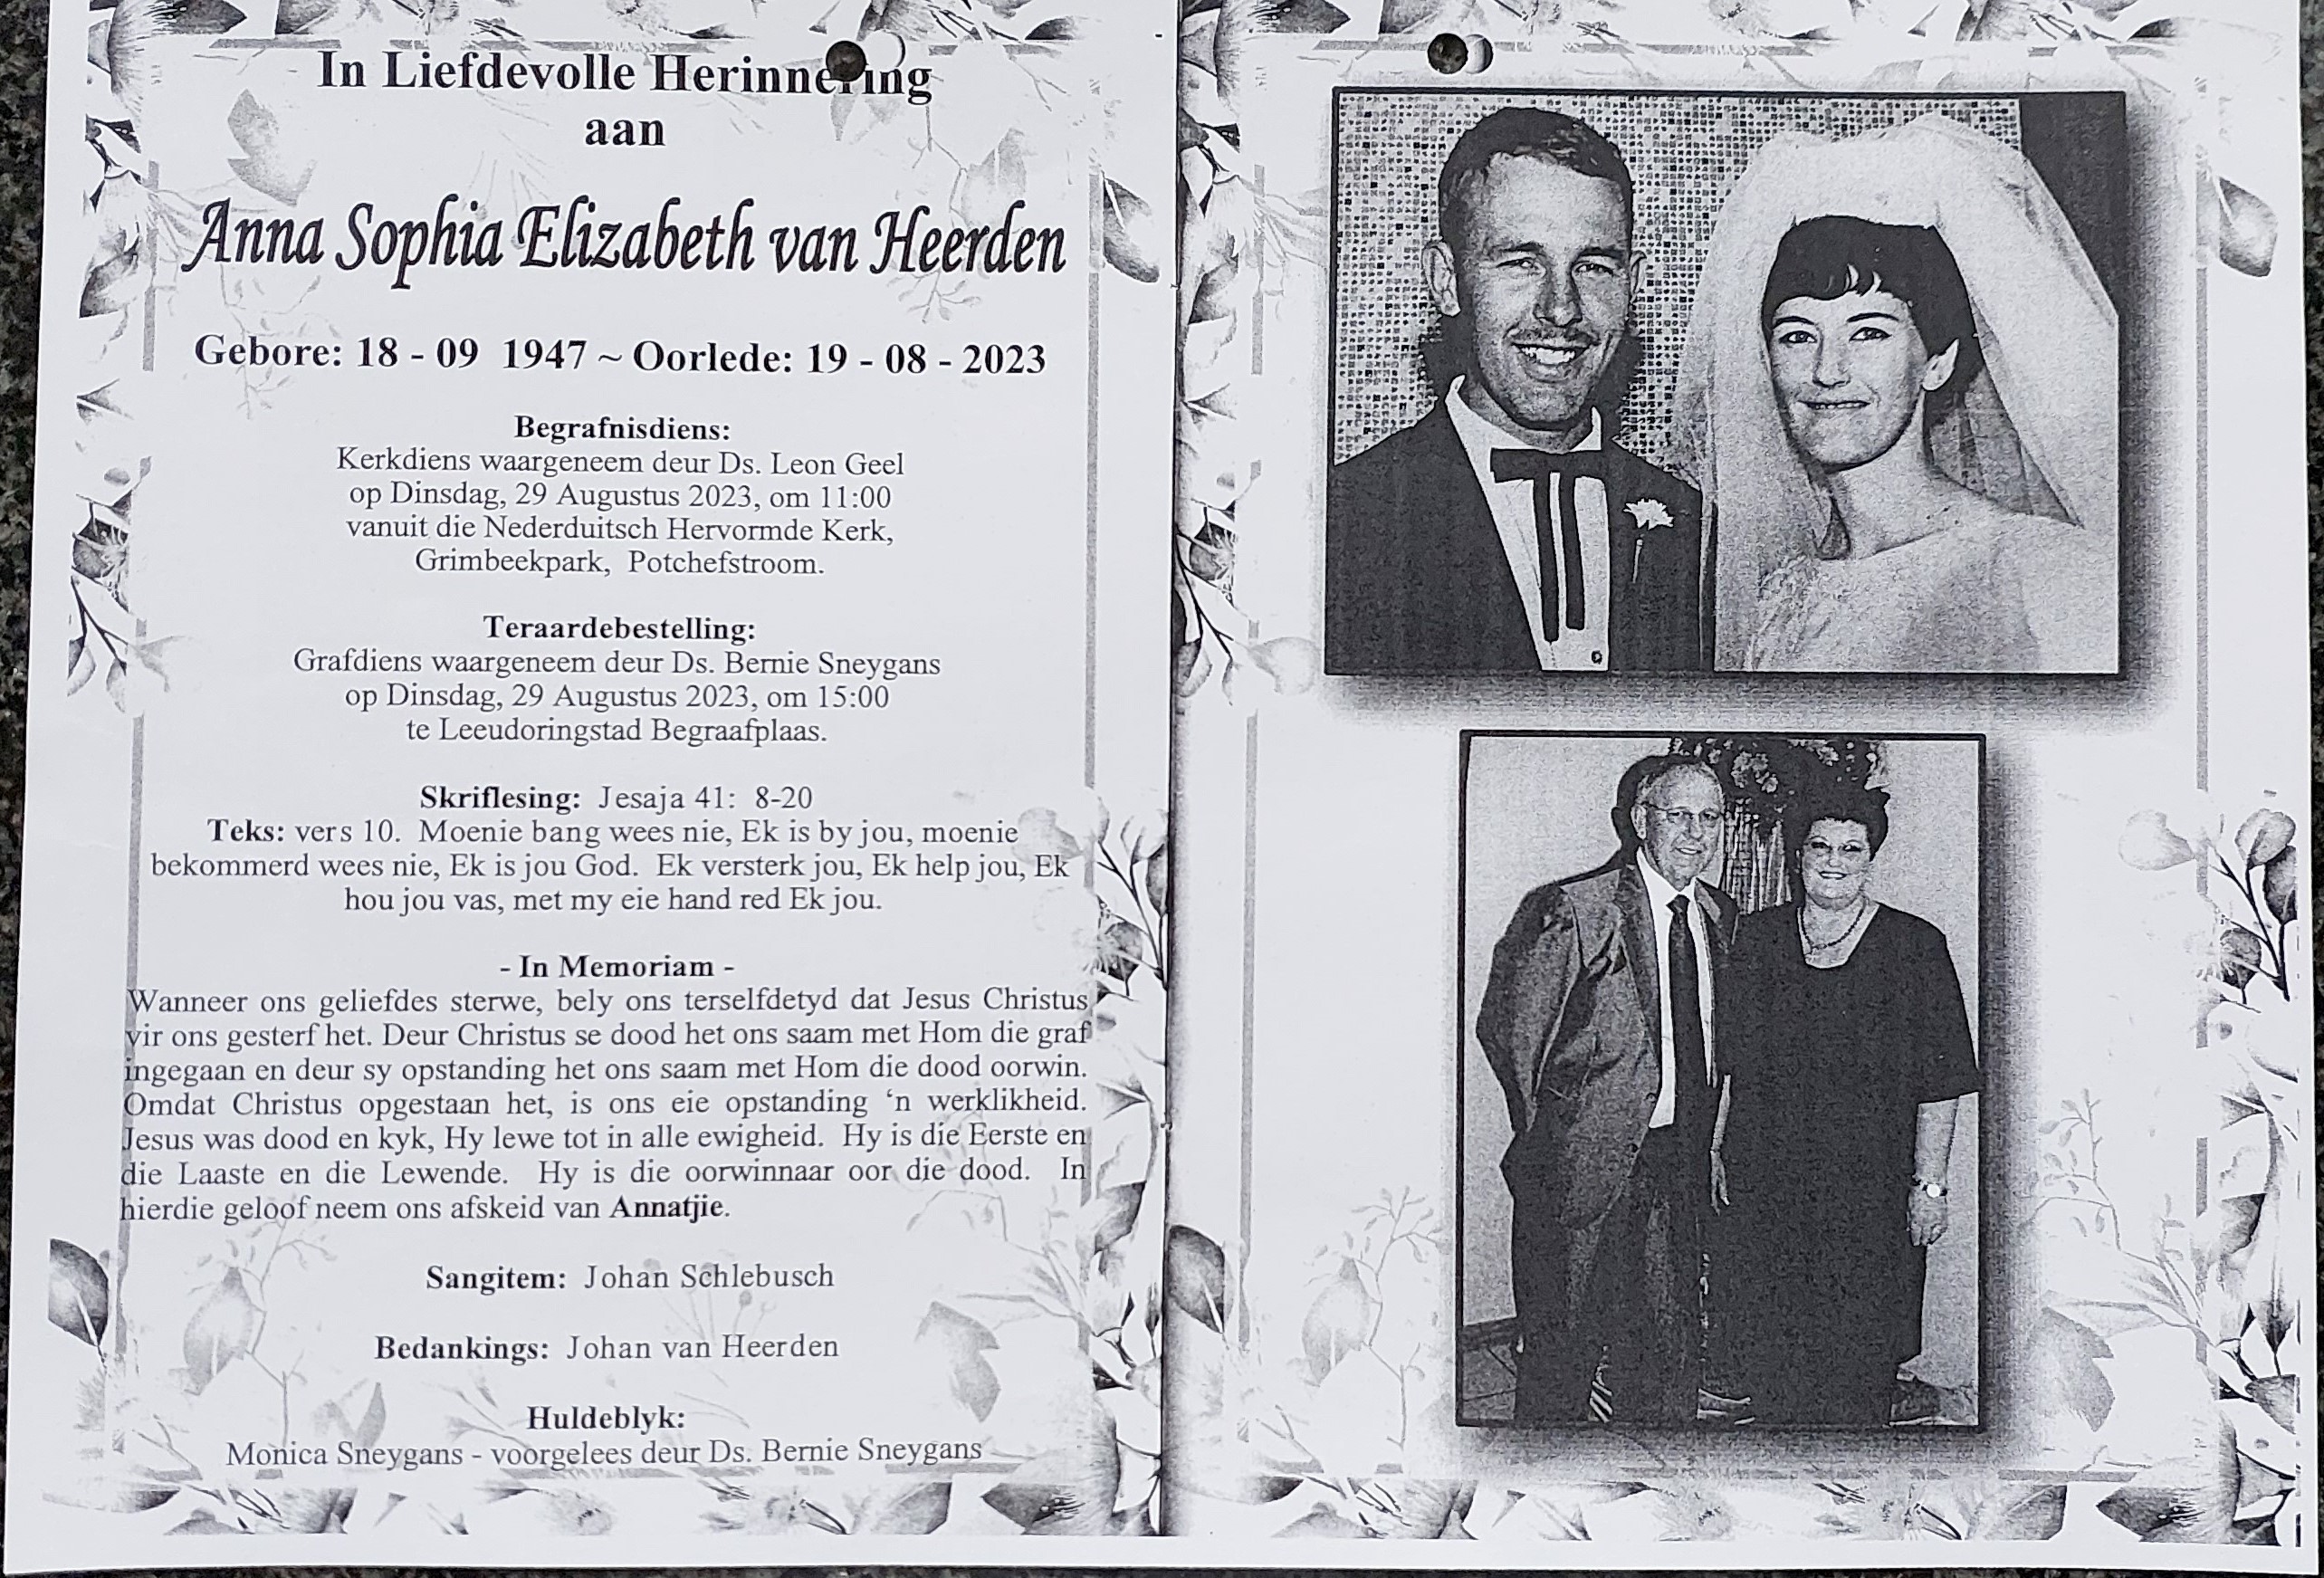 In Liefdevolle Herinnering
aan
Anna Sophia Elizabeth van Heerden
Gebore: 18 - 09 1947 ~ Oorlede: 19 - 08 - 2023
Begrafnisdiens:
Kerkdiens waargeneem deur Ds. Leon Geel
op Dinsdag, 29 Augustus 2023, om 11:00
vanuit die Nederduitsch Hervormde Kerk,
Grimbeekpark, Potchefstroom.
Teraardebestelling:
Grafdiens waargeneem deur Ds. Bernie Sneygans
op Dinsdag, 29 Augustus 2023, om 15:00
te Leeudoringstad Begraafplaas.
Skriflesing: Jesaja 41: 8-20
Teks: vers 10. Moenie bang wees nie, Ek is by jou, moenie
bekommerd wees nie, Ek is jou God. Ek versterk jou, Ek help jou, Ek
hou jou vas, met my eie hand red Ek jou.
- In Memoriam -
Wanneer ons geliefdes sterwe, bely ons terselfdetyd dat Jesus Christus
vir ons gesterf het. Deur Christus se dood het ons saam met Hom die graf
ingegaan en deur sy opstanding het ons saam met Hom die dood oorwin.
Omdat Christus opgestaan het, is ons eie opstanding ‘n werklikheid.
Jesus was dood en kyk, Hy lewe tot in alle ewigheid. Hy is die Eerste en
die Laaste en die Lewende. Hy is die oorwinnaar oor die dood. In
hierdie geloof neem ons afskeid van Annatjie.
Sangitem: Johan Schlebusch
Bedankings: Johan van Heerden
Huldeblyk:
Monica Sneygans - voorgelees deur Ds. Bernie Sneygans